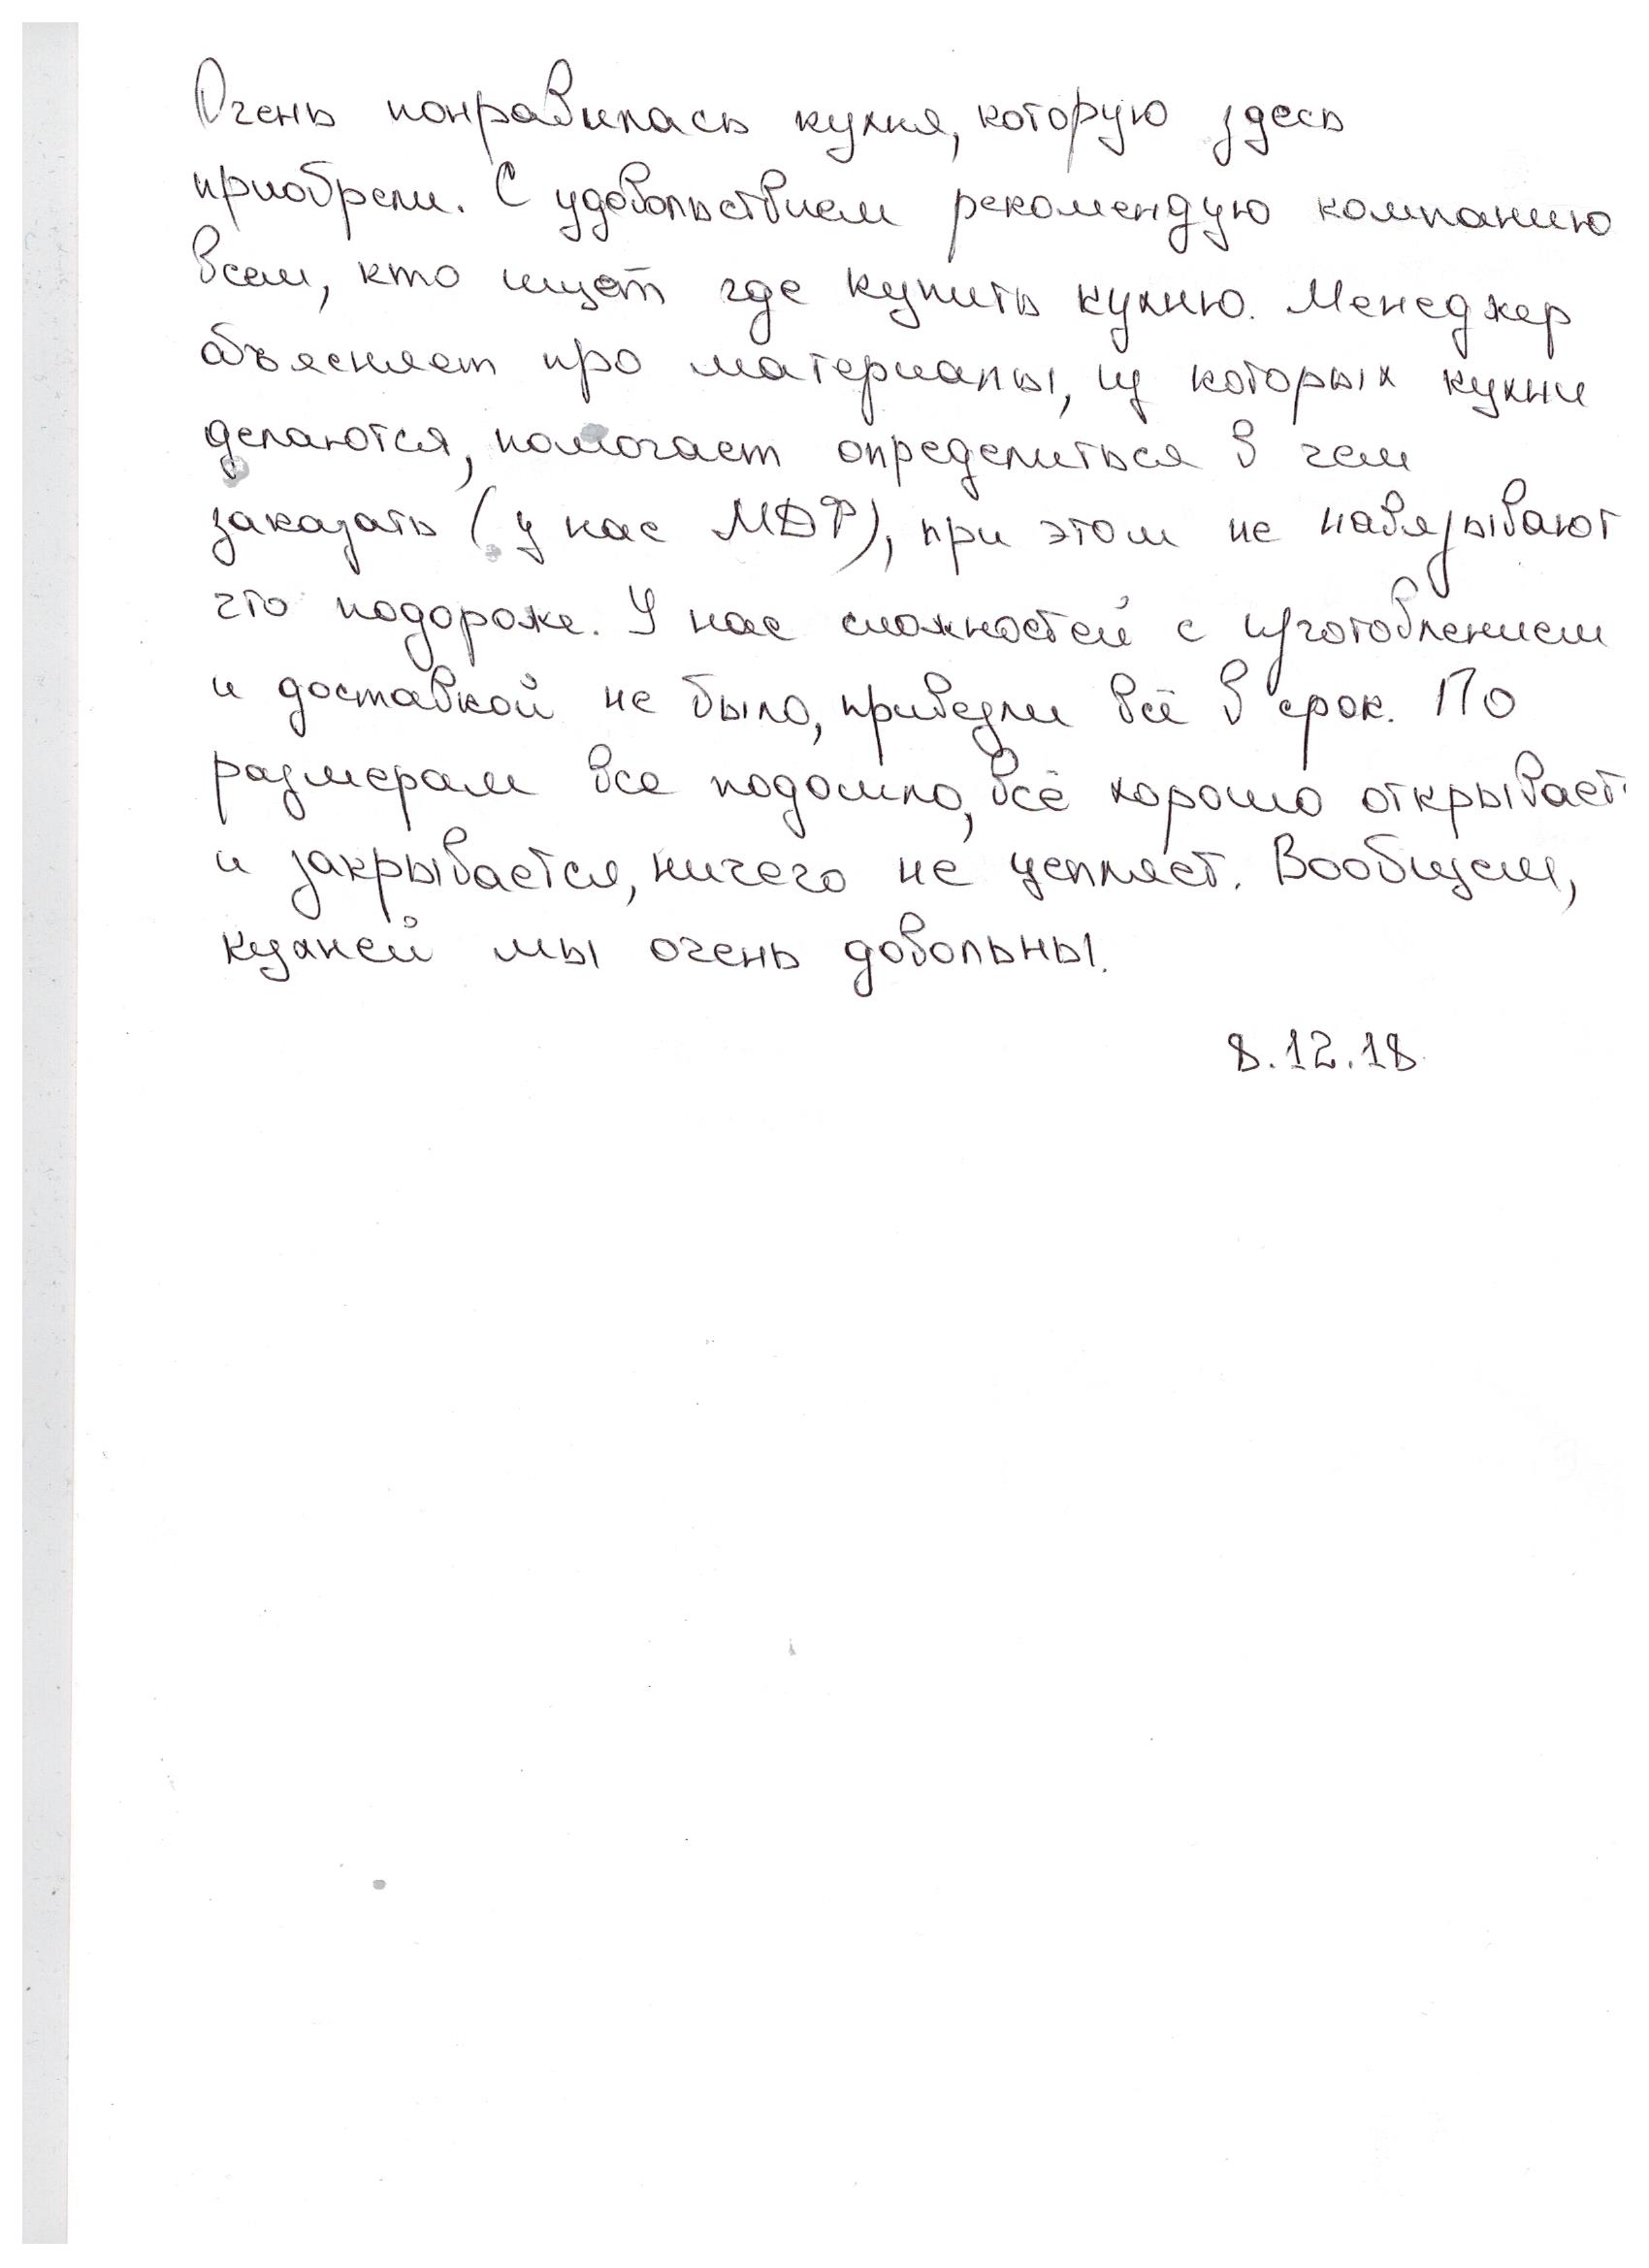 Очень понравилась кухня, которую здесь
приобрели. С удовольствием рекомендую компанию
всем, кто ищет где купить кухню. Менеджер
объясняет про материалы, из которых кухни
делаются, помогает определиться в чем
заказать (у нас МДФ), при этом не навязывают
что подороже. У нас сложностей с изготовлением
и доставкой не было, привезли всё в срок. По
размерам все подошло, всё хорошо открывает
и закрывается, ничего не цепляет. Вообщем,
кухней мы очень довольны.
8.12.18